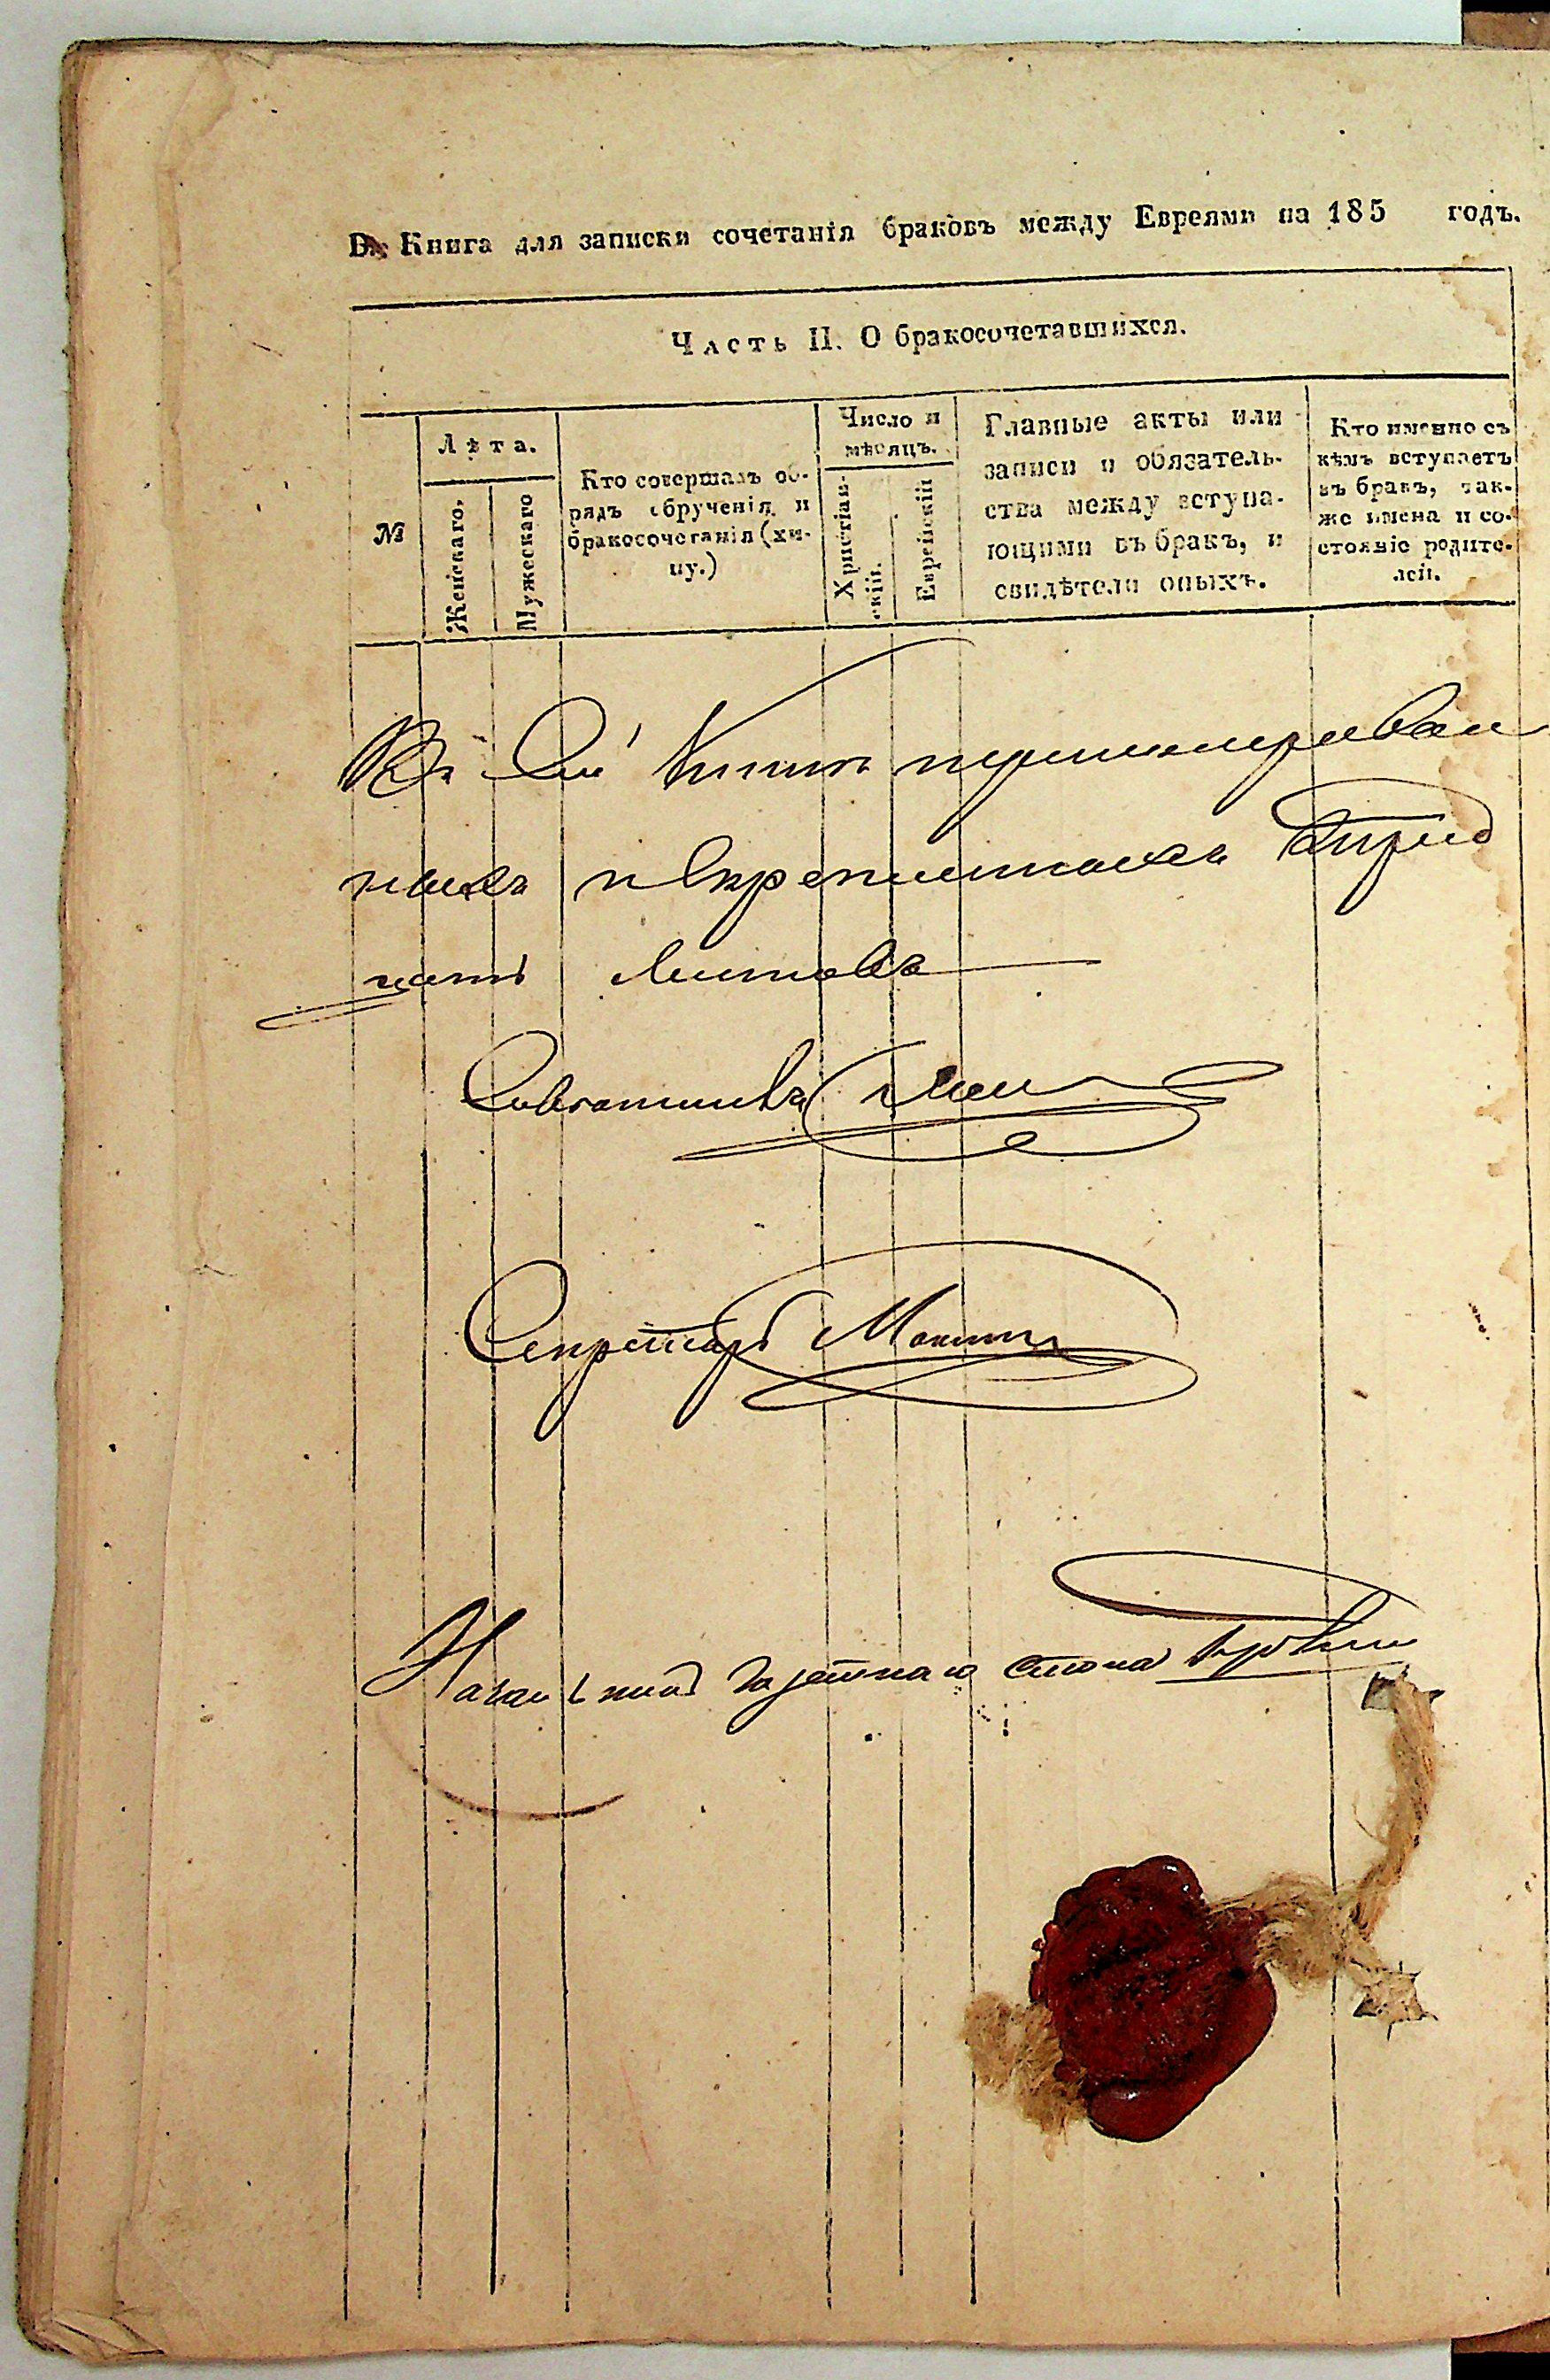 Книга для записки сочетанія браковъ между Евреями на 185 годъ.
Часть II. О бракосочетавшихся.
№
Лѣта.
Женскаго,
Мужескаго
Кто совершалъ об-
рядъ обрученія и
бракосочетанія (хи-
пу.)
Число и
мѣсяцъ.
Христіан-
скій.
Еврейскій
Главные акты или
записи и обязатель-
ства между вступа-
ющими въ бракъ, и
свидѣтели оныхъ.
Кто именно съ
кѣмъ вступаетъ
въ бракъ, так-
же имена и со-
стояніе родите-
лей.
Въ сей Книгѣ нумерован
ныхъ и скрепленныхъ трид
цать листовъ
Советникъ
Секретарь
Начальникъ Газетнаго стола